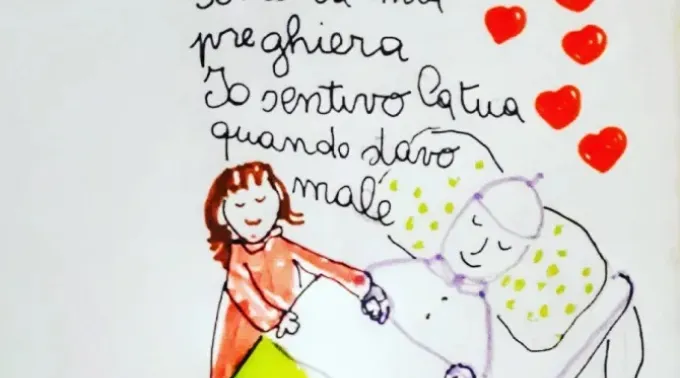 preghiera
Io sentivo la tua
quando stavo
male